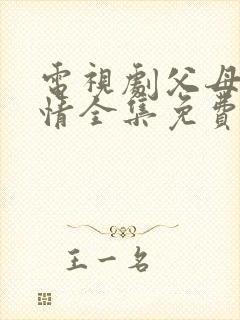 電視劇父母
情全集免費
王一名